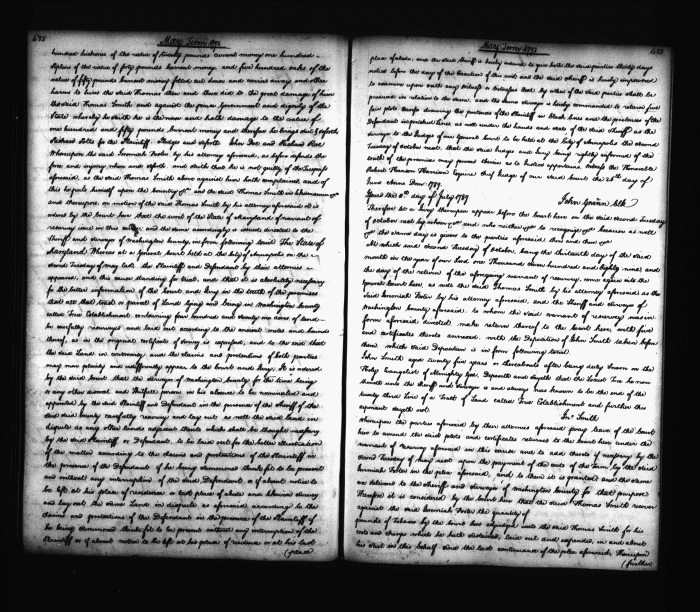 May Term 1792
hundred hickories of the value of twenty pounds current money one hundred
of the value of fifty pounds current money and five hundred oaks of the
value of fifty pounds current money felled cut down and carried away and other
harms to him the said Thomas then and there did to the great damage of him
the said Thomas Smith and against the peace Government and dignity of the
State whereby he saith he is the worse and hath damage to the value of
one hundred and fifty pounds current money and therefore he brings suit &
Richard Potts for the Plaintiff. Pledges John Doe and Richard Roe
Whereupon the said Jeremiah by his attorney aforesaid, as before defends the
force and injury when and saith that he is not guilty of the trespass
aforesaid, as the said Thomas Smith above against him hath complained, and of
this he puts himself upon the country and the said Thomas Smith in like manner
and thereupon on motion of the said Thomas Smith by his attorney aforesaid it is
ordered by the court here that the of the State of Maryland of warrant of
resurvey in this cause, and the same accordingly is issued directed to the
Sheriff and surveyor of Washington County, in form following to wit The State of
Maryland Whereas at a general court held at the City of Annapolis on the
second Tuesday of May last the Plaintiff and Defendant by their attornies
appeared, and this cause ready for trial, and that it is absolutely necessary
for the better information of the court and Jury in the truth of the premises
that all that tract or parcel of Land lying and being in Washington County
called True Establishment containing four hundred and twenty six acres of land
be carefully resurveyed and laid out according to the ancient metes and bounds
thereof, as in the original certificate of survey is expressed, and to the end that
the said Land in controversy and the claims and pretentions of both parties
may more plainly and indifferently appear, to the court and Jury. It is ordered
by the said court that the surveyor of Washington County for the time being
or any other sound and skilfull person in his absence to be nominated and
appointed by the said Plaintiff and Defendant in the presence of the sheriff of the
said county carefully resurvey and lay out as well the said Land in
dispute as any other Lands adjacent thereto which shall be thought necessary
by the said Plaintiff or Defendant, to be laid out for the better illustration
of the matter according to the claims and pretentions of the Plaintiff in
the presence of the Defendant if he being summoned thinks fit to be present
and without any interruption of the said Defendant or if absent notice to
be left at his place of residence or last place of abode and likewise survey
and lay out the same Land in dispute as aforesaid according to the
claims and pretentions of the Defendant in the presence of the Plaintiff if
he being summoned thinks fit to be present without any interruption of the
Plaintiff or if absent notice to be left at his place of residence or at his last
(place
May Term 1792
place of abode, and the said Sheriff is hereby ordered to give both the said parties thirty days
notice before the day of the execution of this and the said Sheriff is hereby impowered
to summon upon oath any witness or witnesses that by either of the said parties shall be
produced in relation to the same, and the same surveyor is hereby commanded to return five
fair plots thereof shewing the pretences of the Plaintiff in black lines and the pretences of the
Defendant in pricked Lines as well under the hands and seals of the said Sheriff as the
surveyor to the Judges of our General Court to be held at the City of Annapolis the second
Tuesday of October next, that the said Judges and Jury being rightly informed of the
truth of the premises may proceed therein as to Justice appertains. Witness the Honorable
Robert Hanson Harrison Esquire Chief Judge of our said Court the 26th day of
June Anno Dom: 1789.
Issued the 8th day of July 1789
John Gwinn Clk
Therefore let a Jury thereupon appear before the court here on the said second Tuesday
of October next by whom &c and who neither &c to recognize &c because as well
&c the same day is given to the parties aforesaid then and there &c
At which said second Tuesday of October, being the thirteenth day of the said
month in the year of our Lord one Thousand seven hundred and eighty nine and
the day of the return of the aforegoing warrant of resurvey, come again into the
General court here, as well the said Thomas Smith by his attorney aforesaid as the
said Jeremiah by his attorney aforesaid, and the Sheriff and surveyor of
Washington County aforesaid, to whom the said warrant of resurvey was in
form aforesaid directed make return thereof to the Court here, with five
and certificates thereto annexed, with the Deposition of John Smith taken before
them which said Deposition is in form following to wit
John Smith aged twenty five years or thereabouts after being duly sworn on the
Holy Evangelist of Almighty God, Deposeth and sayeth that the Locust Tree he now
sheweth unto the sheriff and surveyor is and always has been to be the end of the
twenty third line of a Tract of Land called True Establishment and further this
deponent sayeth not.
Jno Smith
Whereupon the parties aforesaid by their attornies aforesaid pray leave of the court
here to amend the said plots and certificates returned to the court here under the
warrant of resurvey aforesaid in this cause and to add thereto if necessary by the
second Tuesday of May next upon the payment of the costs of the Term, by the said
Jeremiah in the plea aforesaid, and to them it is granted and the same
are delivered to the sheriff and surveyor of Washington County for that purpose
Therefore it is considered by the court here that the said Thomas Smith recover
against the said Jeremiah the quantity of
pounds of Tobacco by the court here adjudged unto the said Thomas Smith for his
costs and charges which he hath sustained, laid out and expended, in and about
his suit in this behalf and the last continuance of the plea aforesaid, Whereupon
(further